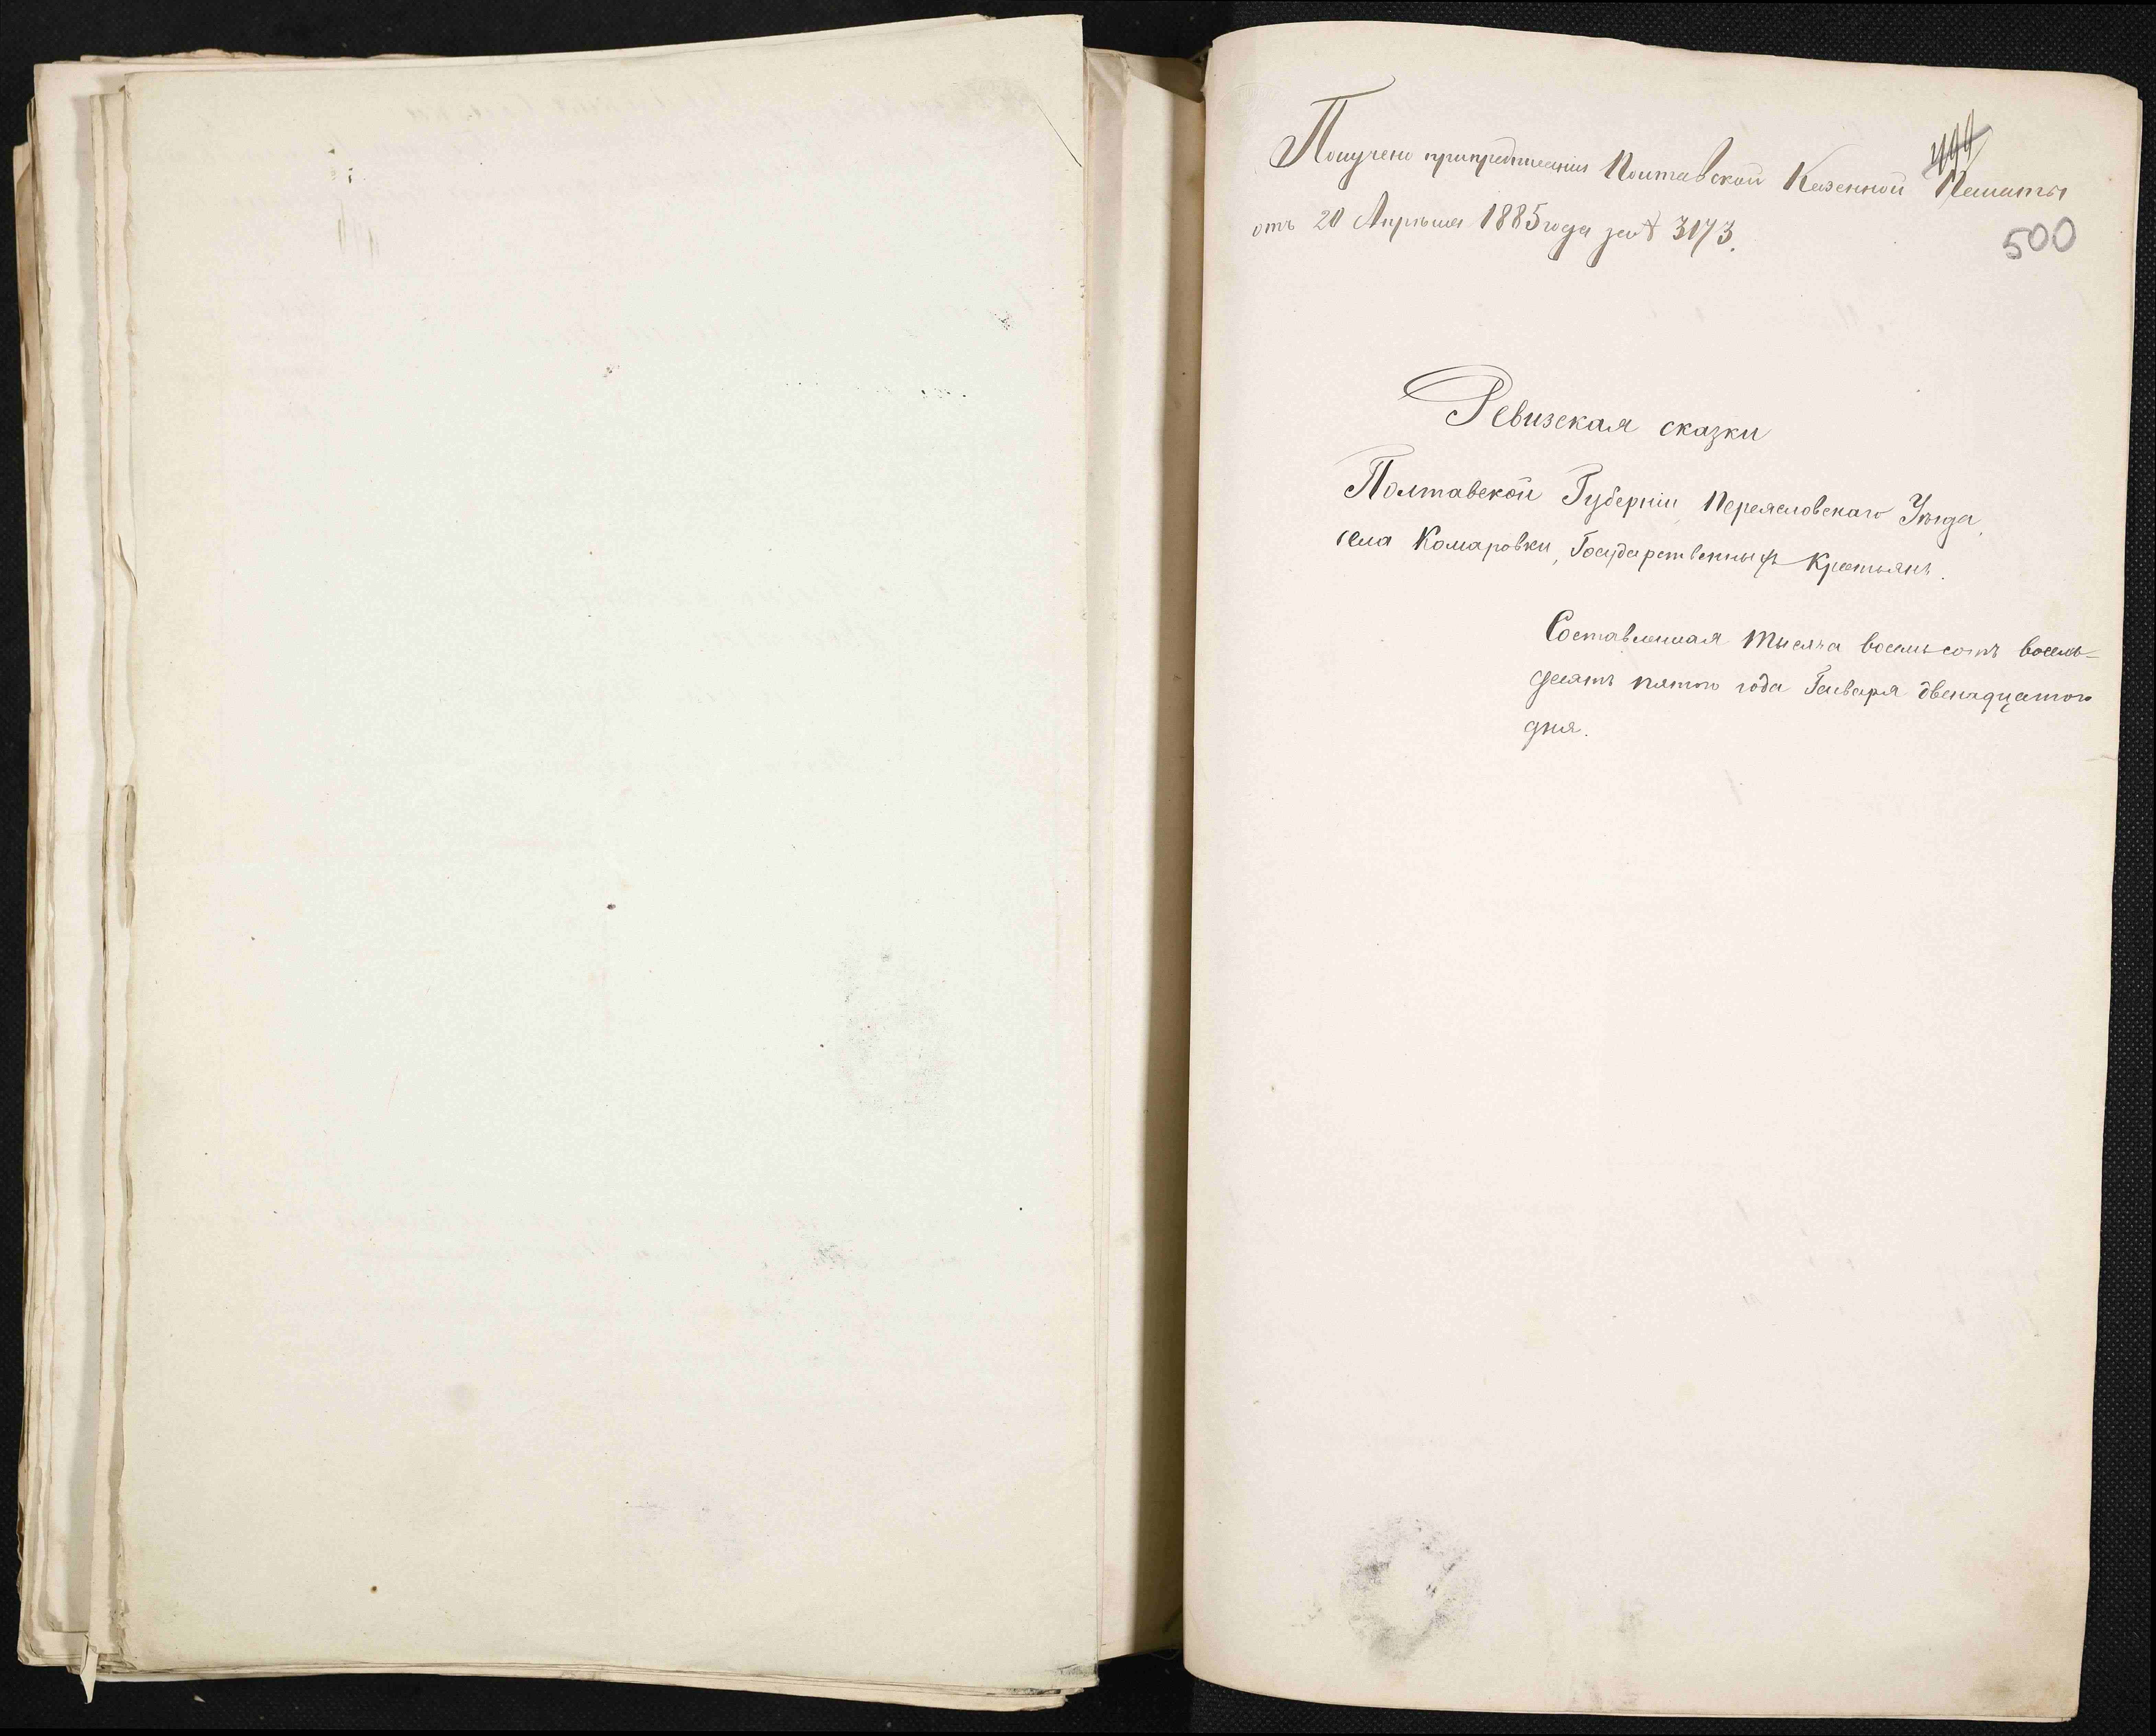 499
Получено припредписаніи Полтавской Казенной Палаты
отъ 20 Апрѣля 1885 года за № 3173.
500
Ревизская сказки
Полтавской Губерніи Переясловскаго Уѣзда,
села Комаровки, Государственныхъ Крестьянъ.
Составленная тысяча восемьсотъ восемь=
десятъ пятого года Генваря двенадцатого
дня.